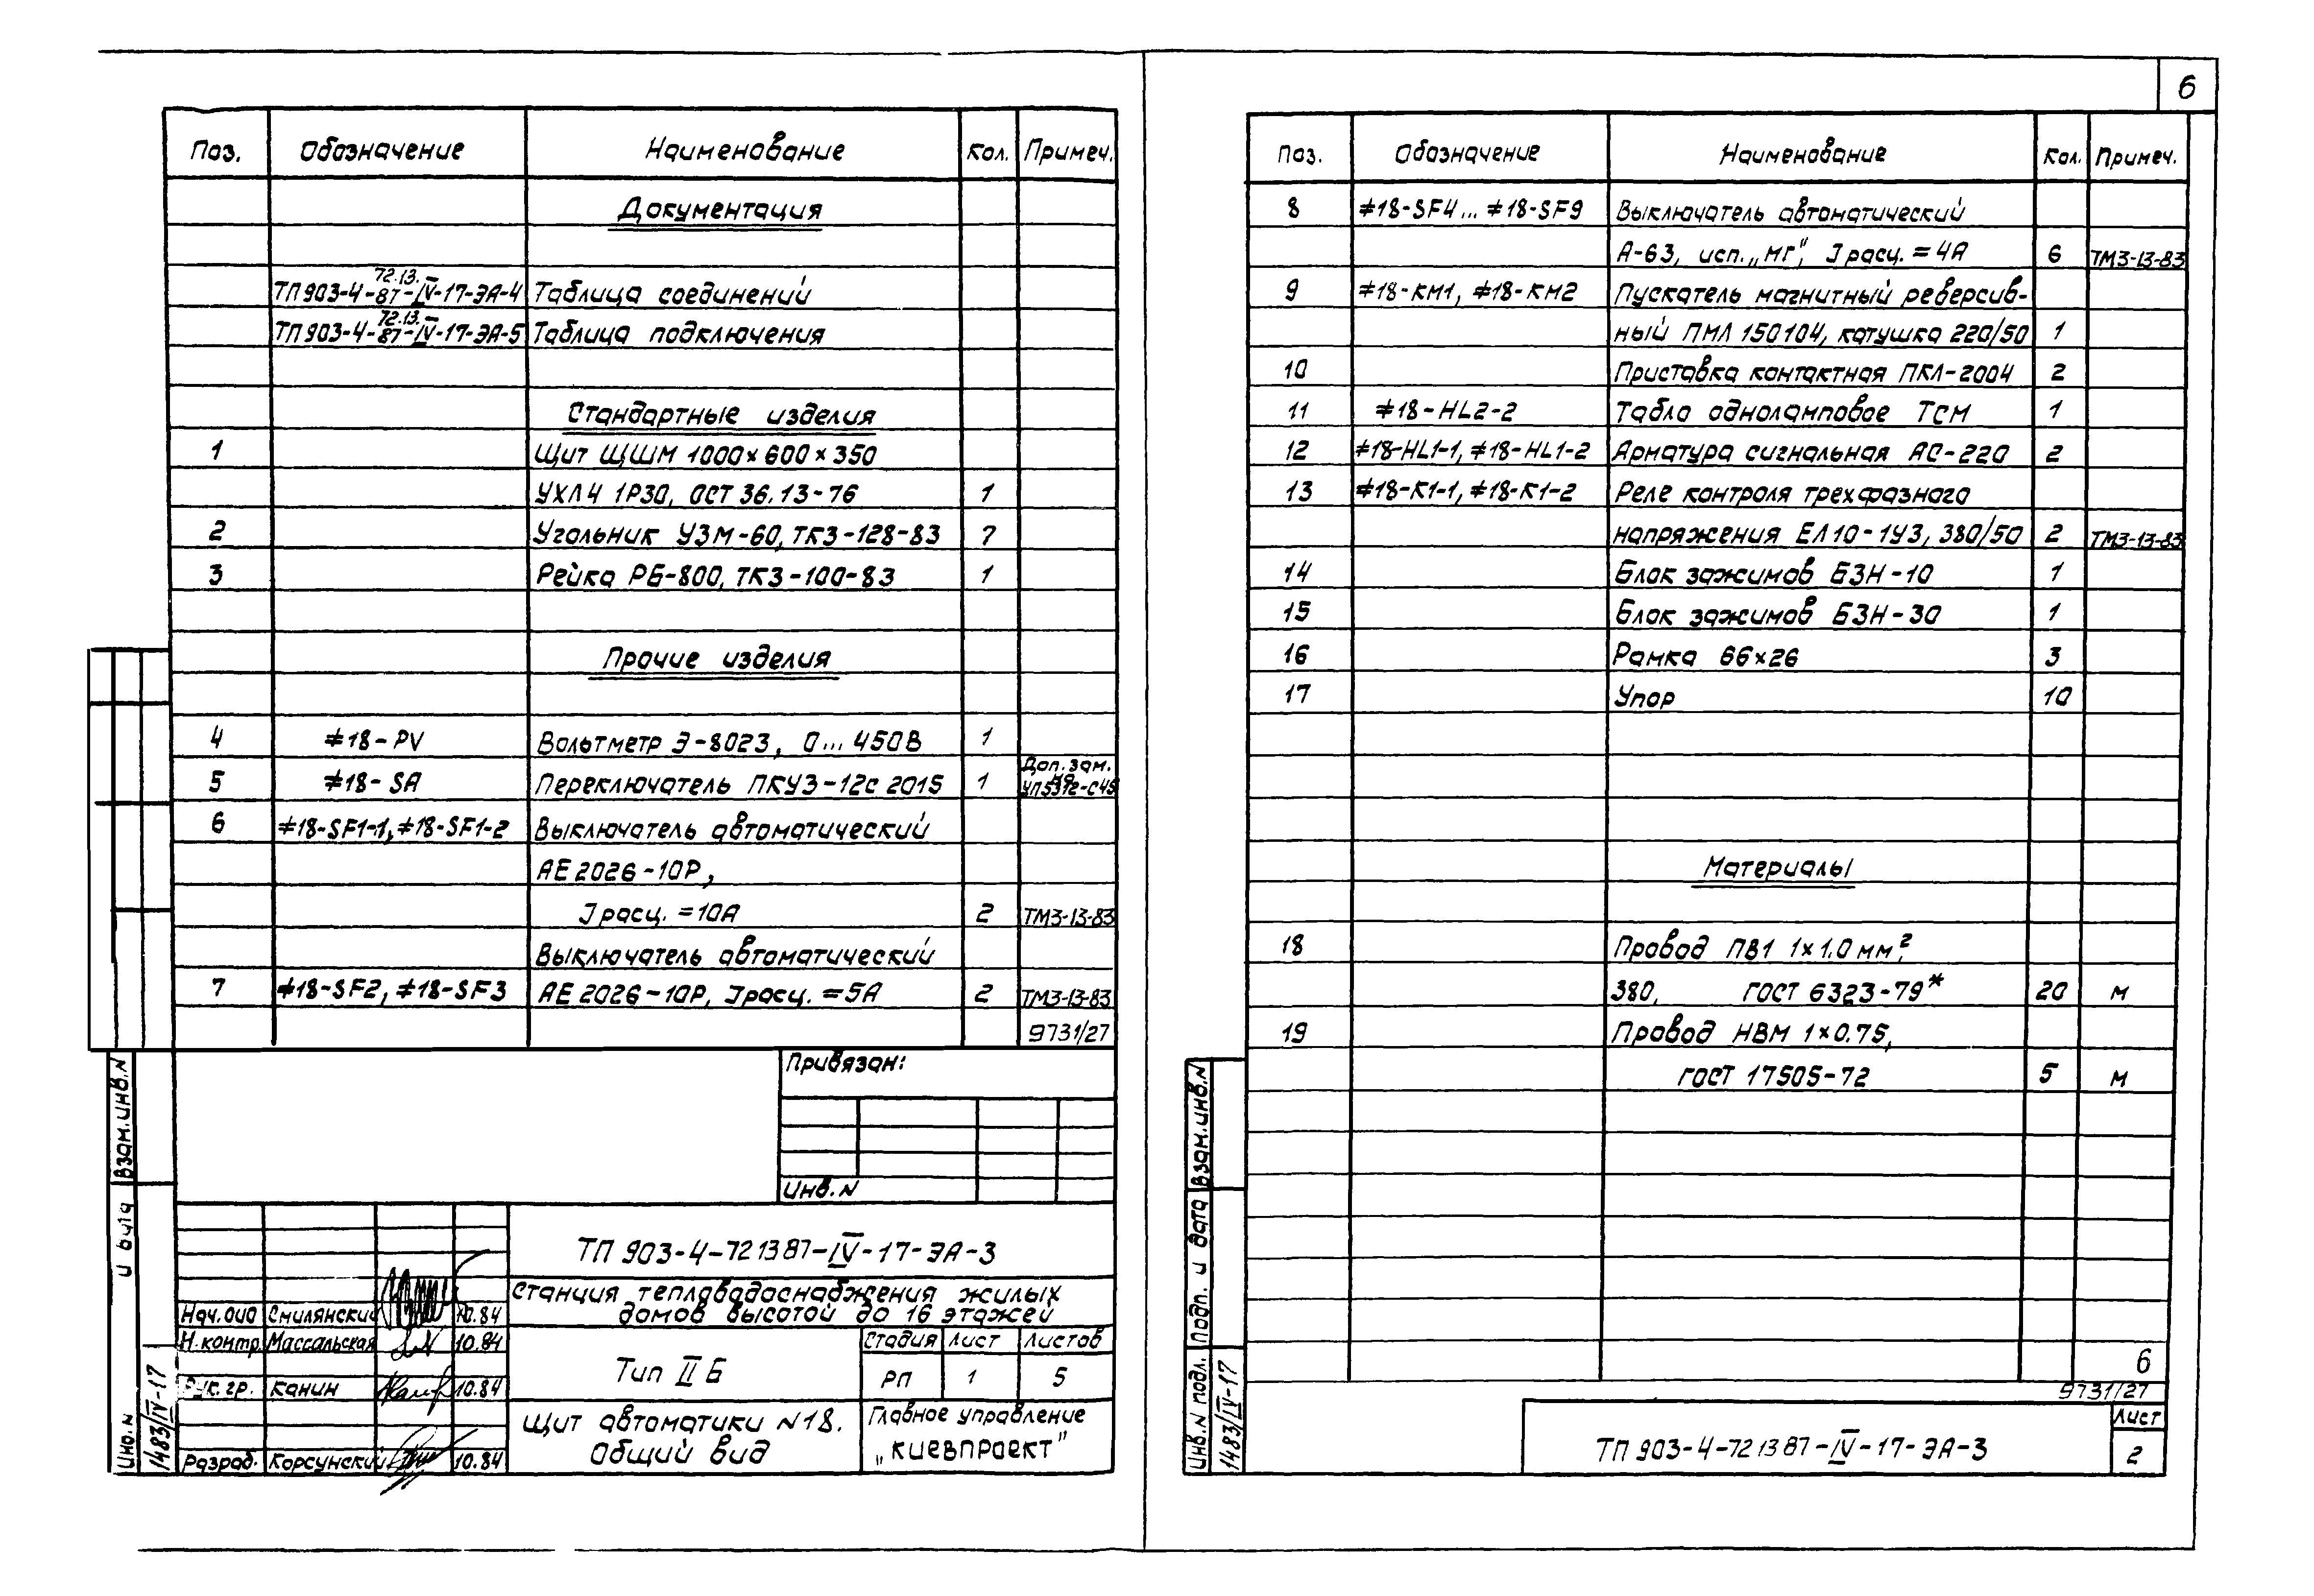 6
Поз. Обозначение Наименование Кол. Примеч.
Документация
ТП 903-4-72.13.87-IV-17-ЭА-4 Таблица соединений
ТП 903-4-72.13.87-IV-17-ЭА-5 Таблица подключения
Стандартные изделия
1 Щит ЩШМ 1000×600×350
УХЛ4 1Р30, ОСТ 36.13-76 1
2 Угольник УЗМ-60, ТК3-128-83 7
3 Рейка РБ-800, ТК3-100-83 1
Прочие изделия
4 ≠18-PV Вольтметр Э-8023, 0...450В 1
5 ≠18-SA Переключатель ПКУ3-12с 2015 1 Доп. зам. на УП5312-С45
6 ≠18-SF1-1, ≠18-SF1-2 Выключатель автоматический
АЕ 2026-10Р,
Iрасц. = 10А 2 ТМ3-13-83
Выключатель автоматический
7 ≠18-SF2, ≠18-SF3 АЕ 2026-10Р, Iрасц. = 5А 2 ТМ3-13-83
9731/27
Привязан:
Инв. N
Взам. инв. N
Инв. N
1483/IV-17
ТП 903-4-721387-IV-17-ЭА-3
Станция тепловодоснабжения жилых
домов высотой до 16 этажей
Нач. ОИО Смилянский 10.84
Н. контр. Массальская 10.84
Рук. гр. Канин 10.84
Разраб. Корсунский 10.84
Тип II Б
Стадия Лист Листов
РП 1 5
Щит автоматики N18.
Общий вид
Главное управление
„Киевпроект"
Поз. Обозначение Наименование Кол. Примеч.
8 ≠18-SF4... ≠18-SF9 Выключатель автоматический
А-63, исп. „МГ", Iрасц. = 4А 6 ТМ3-13-83
9 ≠18-КМ1, ≠18-КМ2 Пускатель магнитный реверсив-
ный ПМЛ 150104, катушка 220/50 1
10 Приставка контактная ПКЛ-2004 2
11 ≠18-HL2-2 Табло одноламповое ТСМ 1
12 ≠18-HL1-1, ≠18-HL1-2 Арматура сигнальная АС-220 2
13 ≠18-К1-1, ≠18-К1-2 Реле контроля трехфазного
напряжения ЕЛ10-1У3, 380/50 2 ТМ3-13-83
14 Блок зажимов БЗН-10 1
15 Блок зажимов БЗН-30 1
16 Рамка 66×26 3
17 Упор 10
Материалы
18 Провод ПВ1 1×1.0 мм²,
380, ГОСТ 6323-79* 20 м
19 Провод НВМ 1×0.75,
ГОСТ 17505-72 5 м
6
9731/27
Взам. инв. N
Подп. и дата
Инв. N подл.
1483/IV-17
ТП 903-4-721387-IV-17-ЭА-3
Лист
2